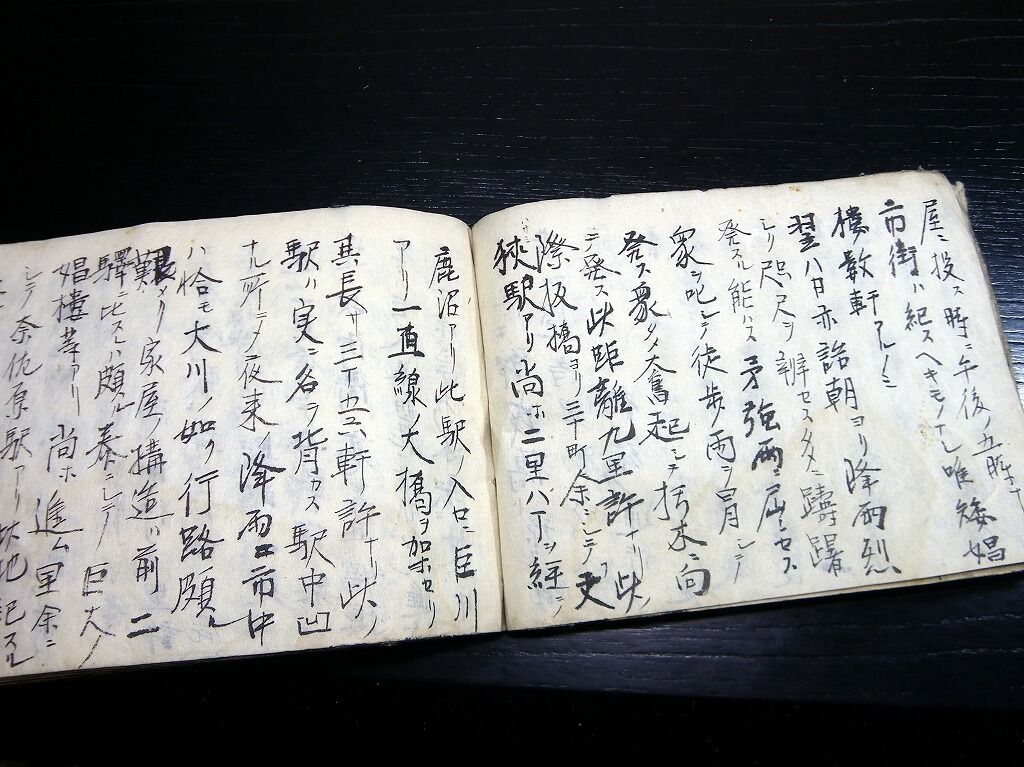 屋ニ投ス時ニ午後ノ五時ナ
市街ハ紀スヘキモノナし唯矮娼
楼数軒アルノミ
翌八日亦詰朝ヨリ降雨烈
シク咫尺ヲ辨セス為メニ躊躇
発スル能ハス予強雨ニ屈セス
衆ヲ叱シテ徒歩雨ヲ冒シテ
発ス衆タメ大奮起シテ栃木ニ向
テ発ス此距離九里許ナリ此ノ
際板橋ヨリ三十町余ニシテ又
狭駅アリ尚ホ二里八丁ヲ経テ
鹿沼アリ此駅ノ入口ニ巨川
アリ一直線ノ大橋ヲ架セリ
其長サ三十五六軒許ナリ此ノ
駅ハ実ニ名ヲ背カス駅中凹
ナル所ニメ夜来ノ降雨ニ市中
ハ恰モ大川ノ如ク行路頗ル
艱メリ家屋ノ構造ハ前二
驛ニ比スレハ頗ル美ニシテ巨大ノ
娼樓等アリ尚ホ進ム里余ニ
シテ奈佐原駅アリ此地記スル